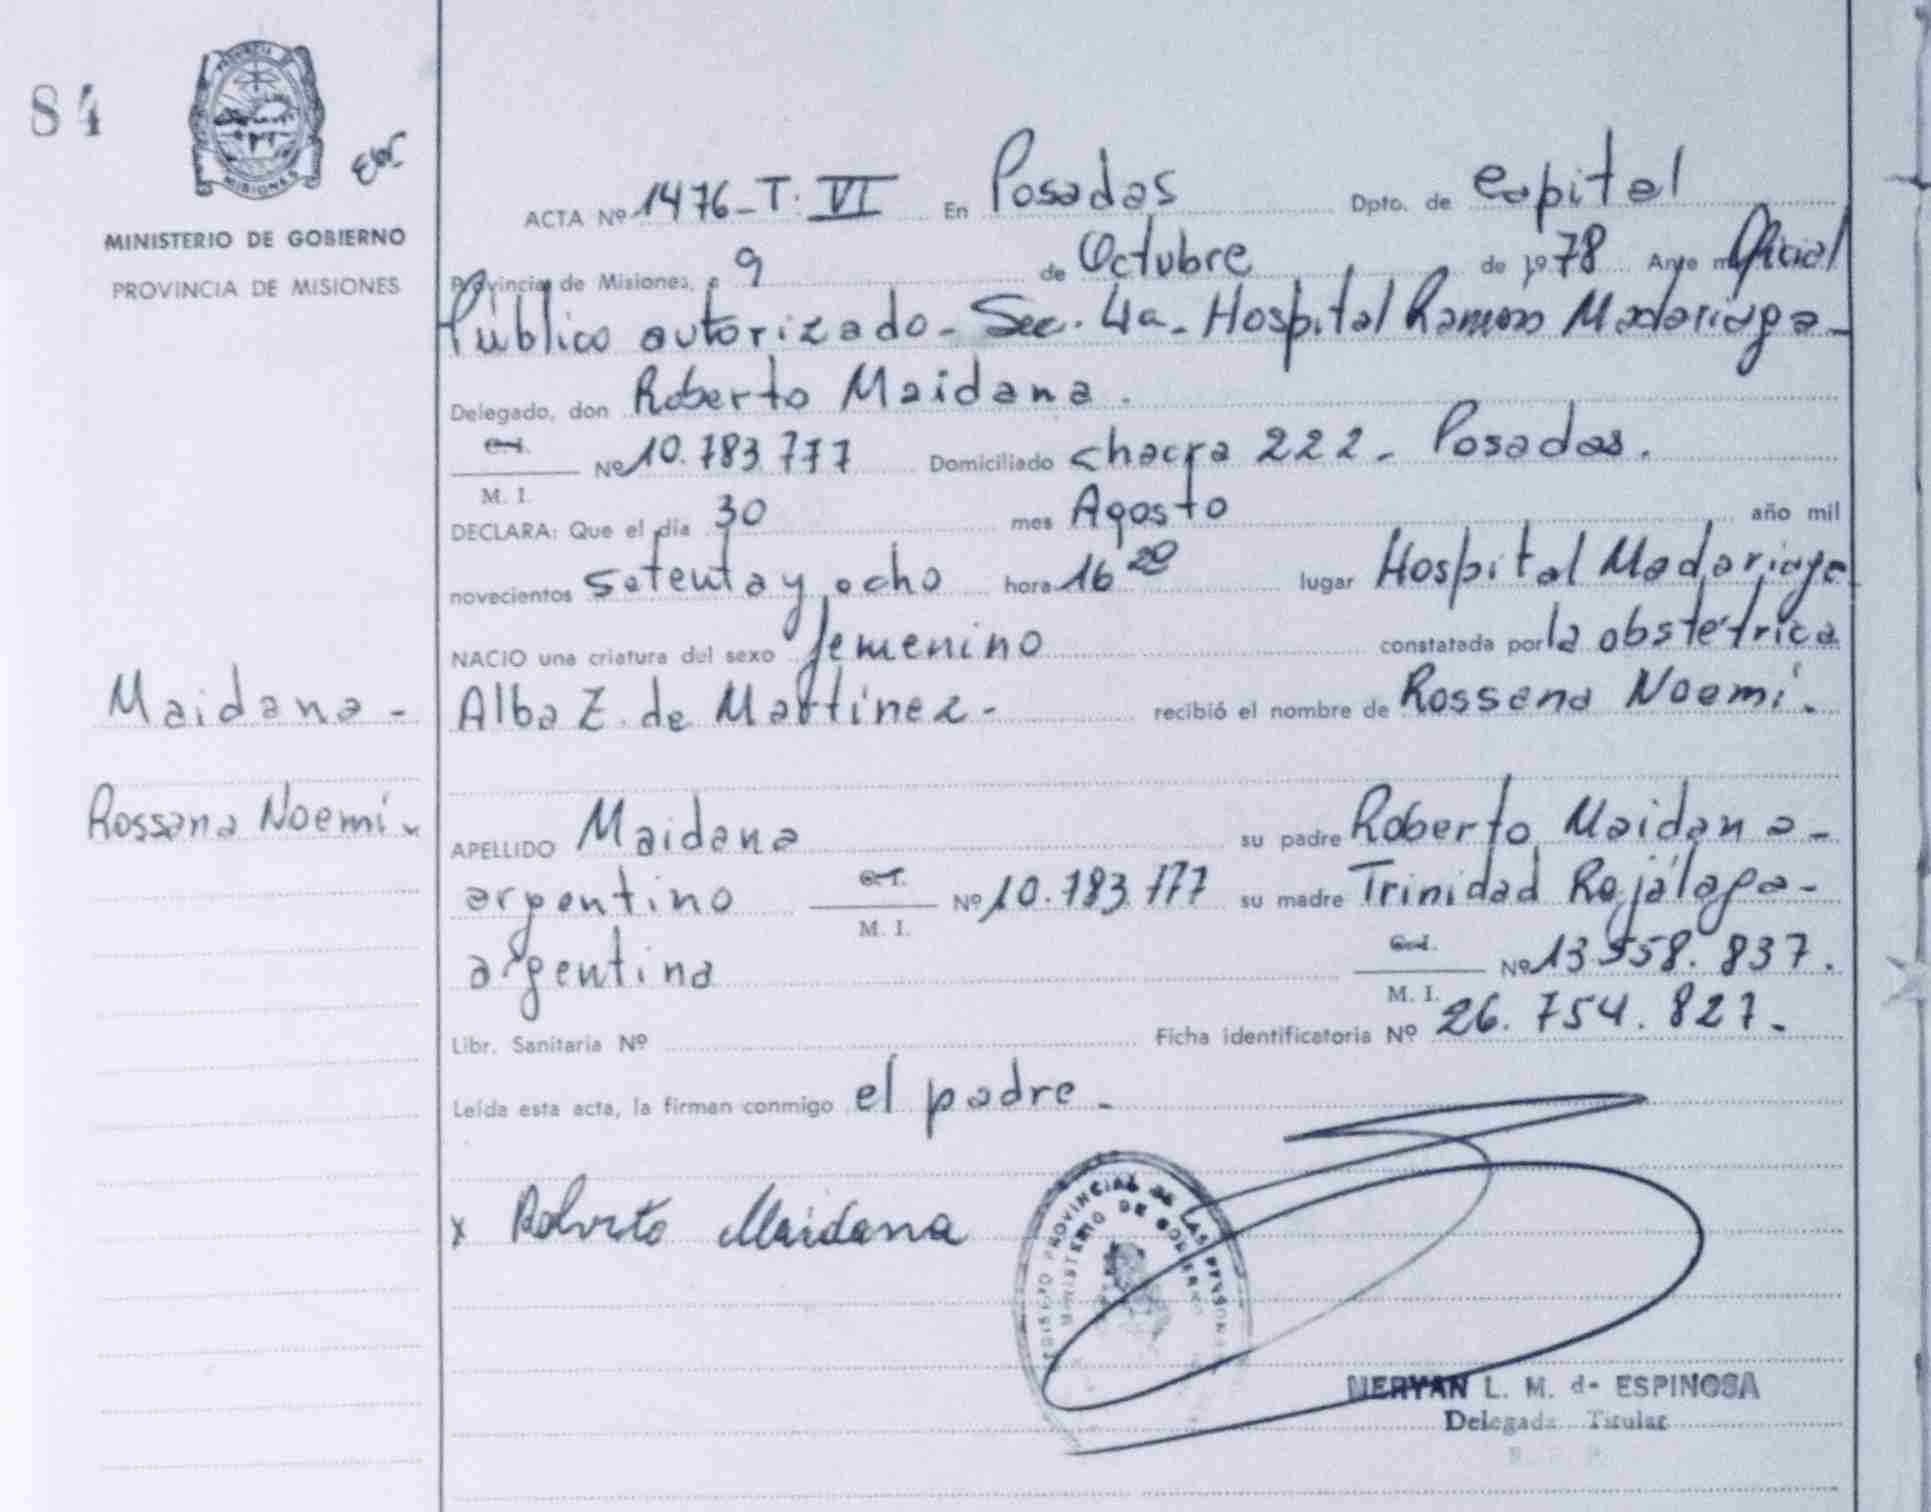 84
MISIONES
MINISTERIO DE GOBIERNO
PROVINCIA DE MISIONES
ACTA Nº 1476_T. VI En Posadas Dpto. de Capital
Provincia de Misiones, a 9 de Octubre de 1978 Ante mí Oficial
Público autorizado_ Sec. 4a_ Hospital Ramon Madariaga_
Delegado, don Roberto Maidana.
C. I.
M. I.
Nº 10.783.777 Domiciliado chacra 222_ Posadas.
DECLARA: Que el día 30 mes Agosto año mil
novecientos setenta y ocho hora 16 20 lugar Hospital Madariaga
NACIO una criatura del sexo femenino constatada por la obstétrica
Alba Z. de Martínez- recibió el nombre de Rossana Noemí.
Maidana-
Rossana Noemí.
APELLIDO Maidana su padre Roberto Maidana-
argentino C. I. Nº 10.783.777 su madre Trinidad Rajálaga-
M. I.
argentina C. I. Nº 13.558.837.
M. I.
Libr. Sanitaria Nº Ficha identificatoria Nº 26.754.827.
Leída esta acta, la firman conmigo el padre-
x Roberto Maidana
REGISTRO PROVINCIAL DE LAS PERSONAS
MINISTERIO DE GOBIERNO
MERYAN L. M. de ESPINOSA
Delegada Titular